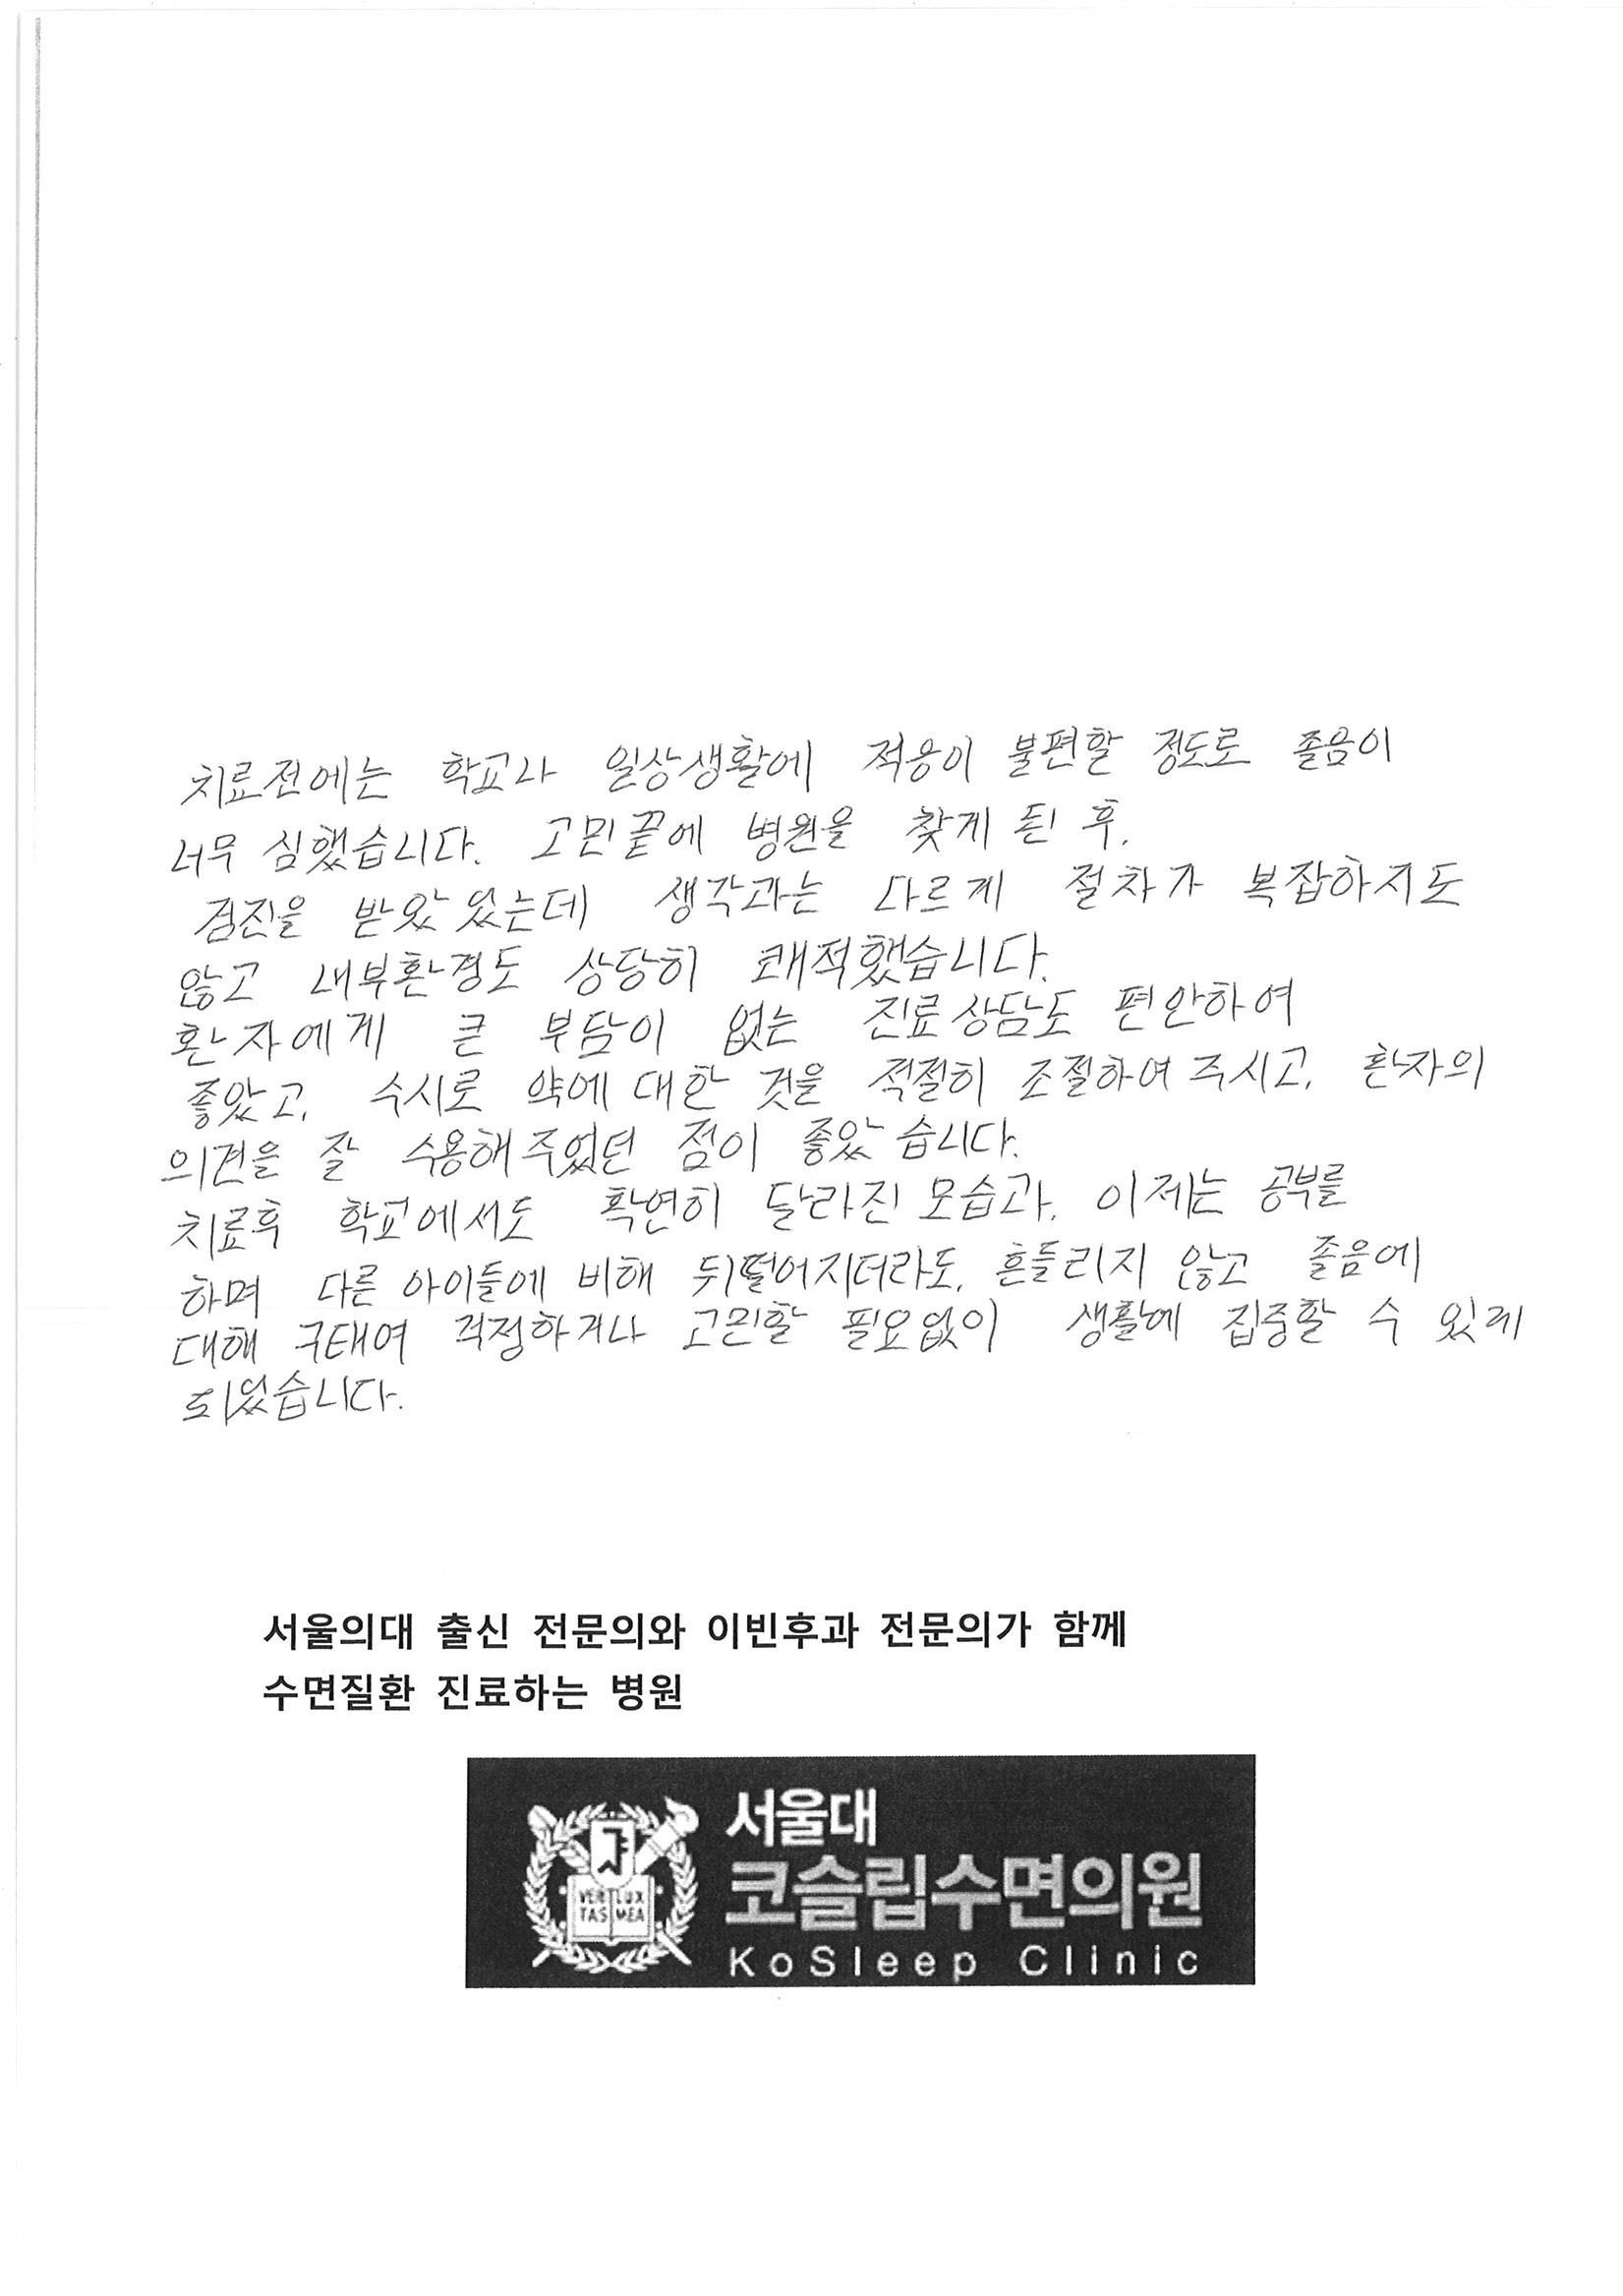 치료전에는 학교나 일상생활에 적응이 불편할 정도로 졸음이
너무 심했습니다. 고민끝에 병원을 찾게 된 후,
검진을 받았었는데 생각과는 다르게 절차가 복잡하지도
않고 내부환경도 상당히 쾌적했습니다.
환자에게 큰 부담이 없는 진료상담도 편안하여
좋았고, 수시로 약에 대한 것을 적절히 조절하여 주시고, 환자의
의견을 잘 수용해주었던 점이 좋았습니다.
치료후 학교에서도 확연히 달라진 모습과, 이제는 공부를
하며 다른 아이들에 비해 뒤떨어지더라도, 흔들리지 않고 졸음에
대해 구태여 걱정하거나 고민할 필요없이 생활에 집중할 수 있게
되었습니다.
서울의대 출신 전문의와 이빈후과 전문의가 함께
수면질환 진료하는 병원
서울대
코슬립수면의원
KoSleep Clinic
VERI LUX
TAS MEA